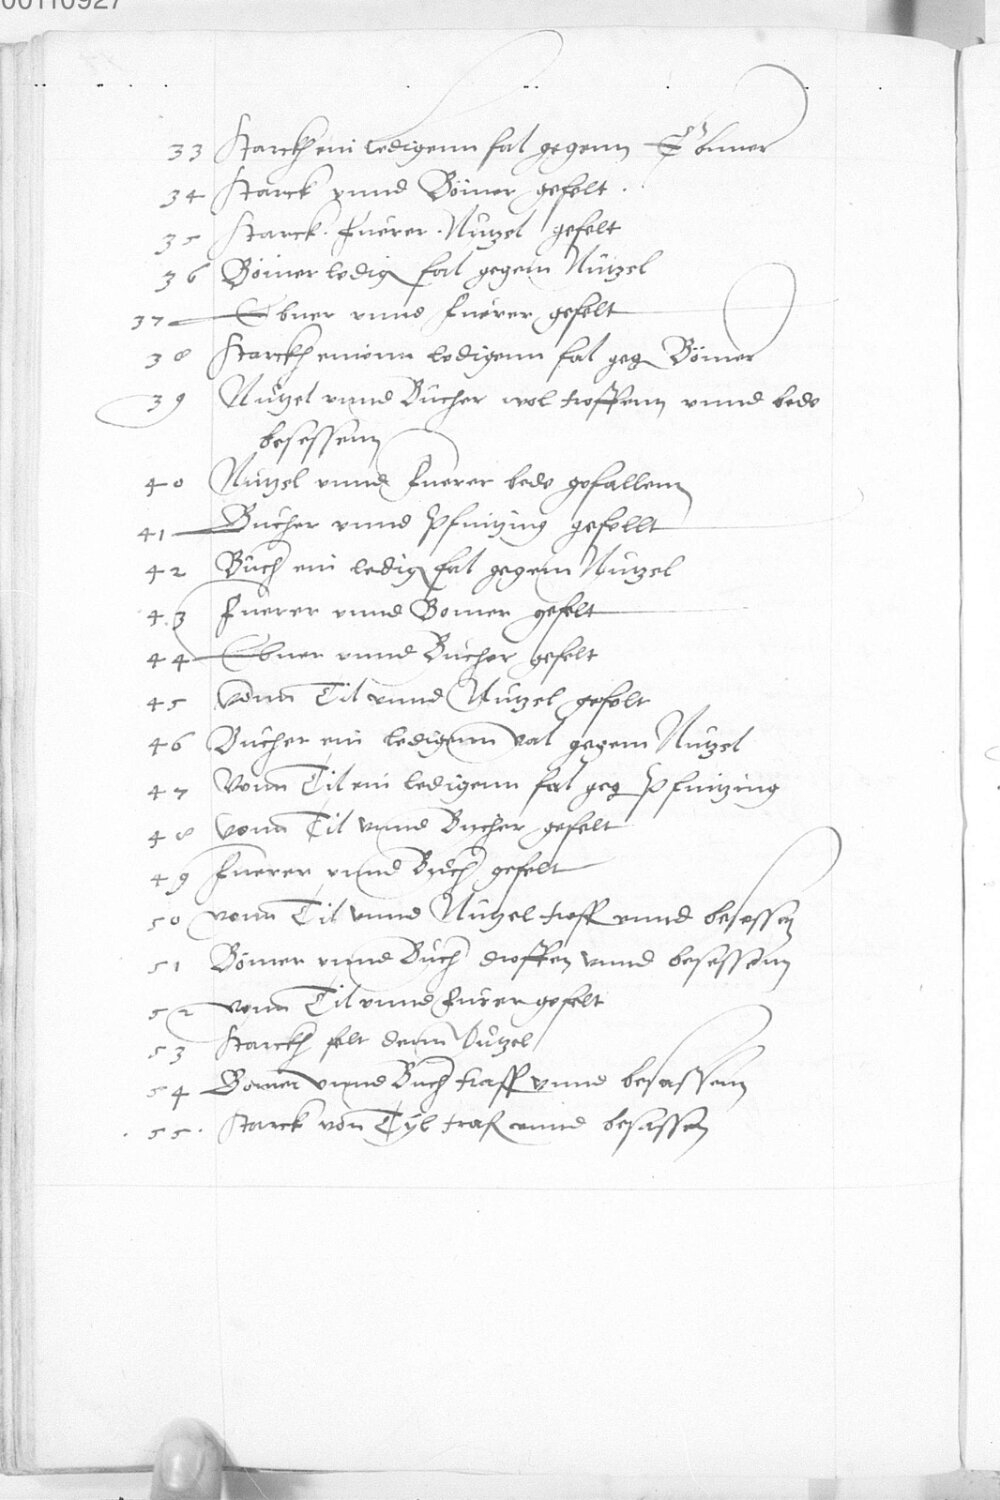 00110927
33 Starckh ein ledigenn fal gegenn Ebnner
34 Starck vnnd Bömer gefelt.
35 Starck. Fuerer. Nützel gefelt
36 Bömer ledig fal gegem Nützel
37 Ebner vnnd Fuerer gefelt
38 Starckh einenn ledigenn fal geg Bömer
39 Nützel vnnd Bücher wol troffenn vnnd bede
besessenn
40 Nützel vnnd Fuerer bede gefallenn
41 Bücher vnnd Pfintzing gefellt
42 Büch ein ledig fal gegem Nützel
43 Fuerer vnnd Bomer gefelt
44 Ebner vnnd Bücher gefelt
45 vonn Til vnnd Nützel gefelt
46 Bücher ein ledigenn val gegem Nützel
47 Vonn Til ein ledigenn fal geg Pfintzing
48 vonn Til vnnd Bücher gefelt
49 Fuerer vnnd Büch gefelt
50 vonn Til vnnd Nützel troff vnnd besessen
51 Bömer vnnd Büch droffen vnnd besessenn
52 vonn Til vnnd Fürer gefelt
53 Starckh felt denn Nützel
54 Bomer vnnd Büch traff vnnd besassenn
55. Starck von Tyl traf vnnd besassen